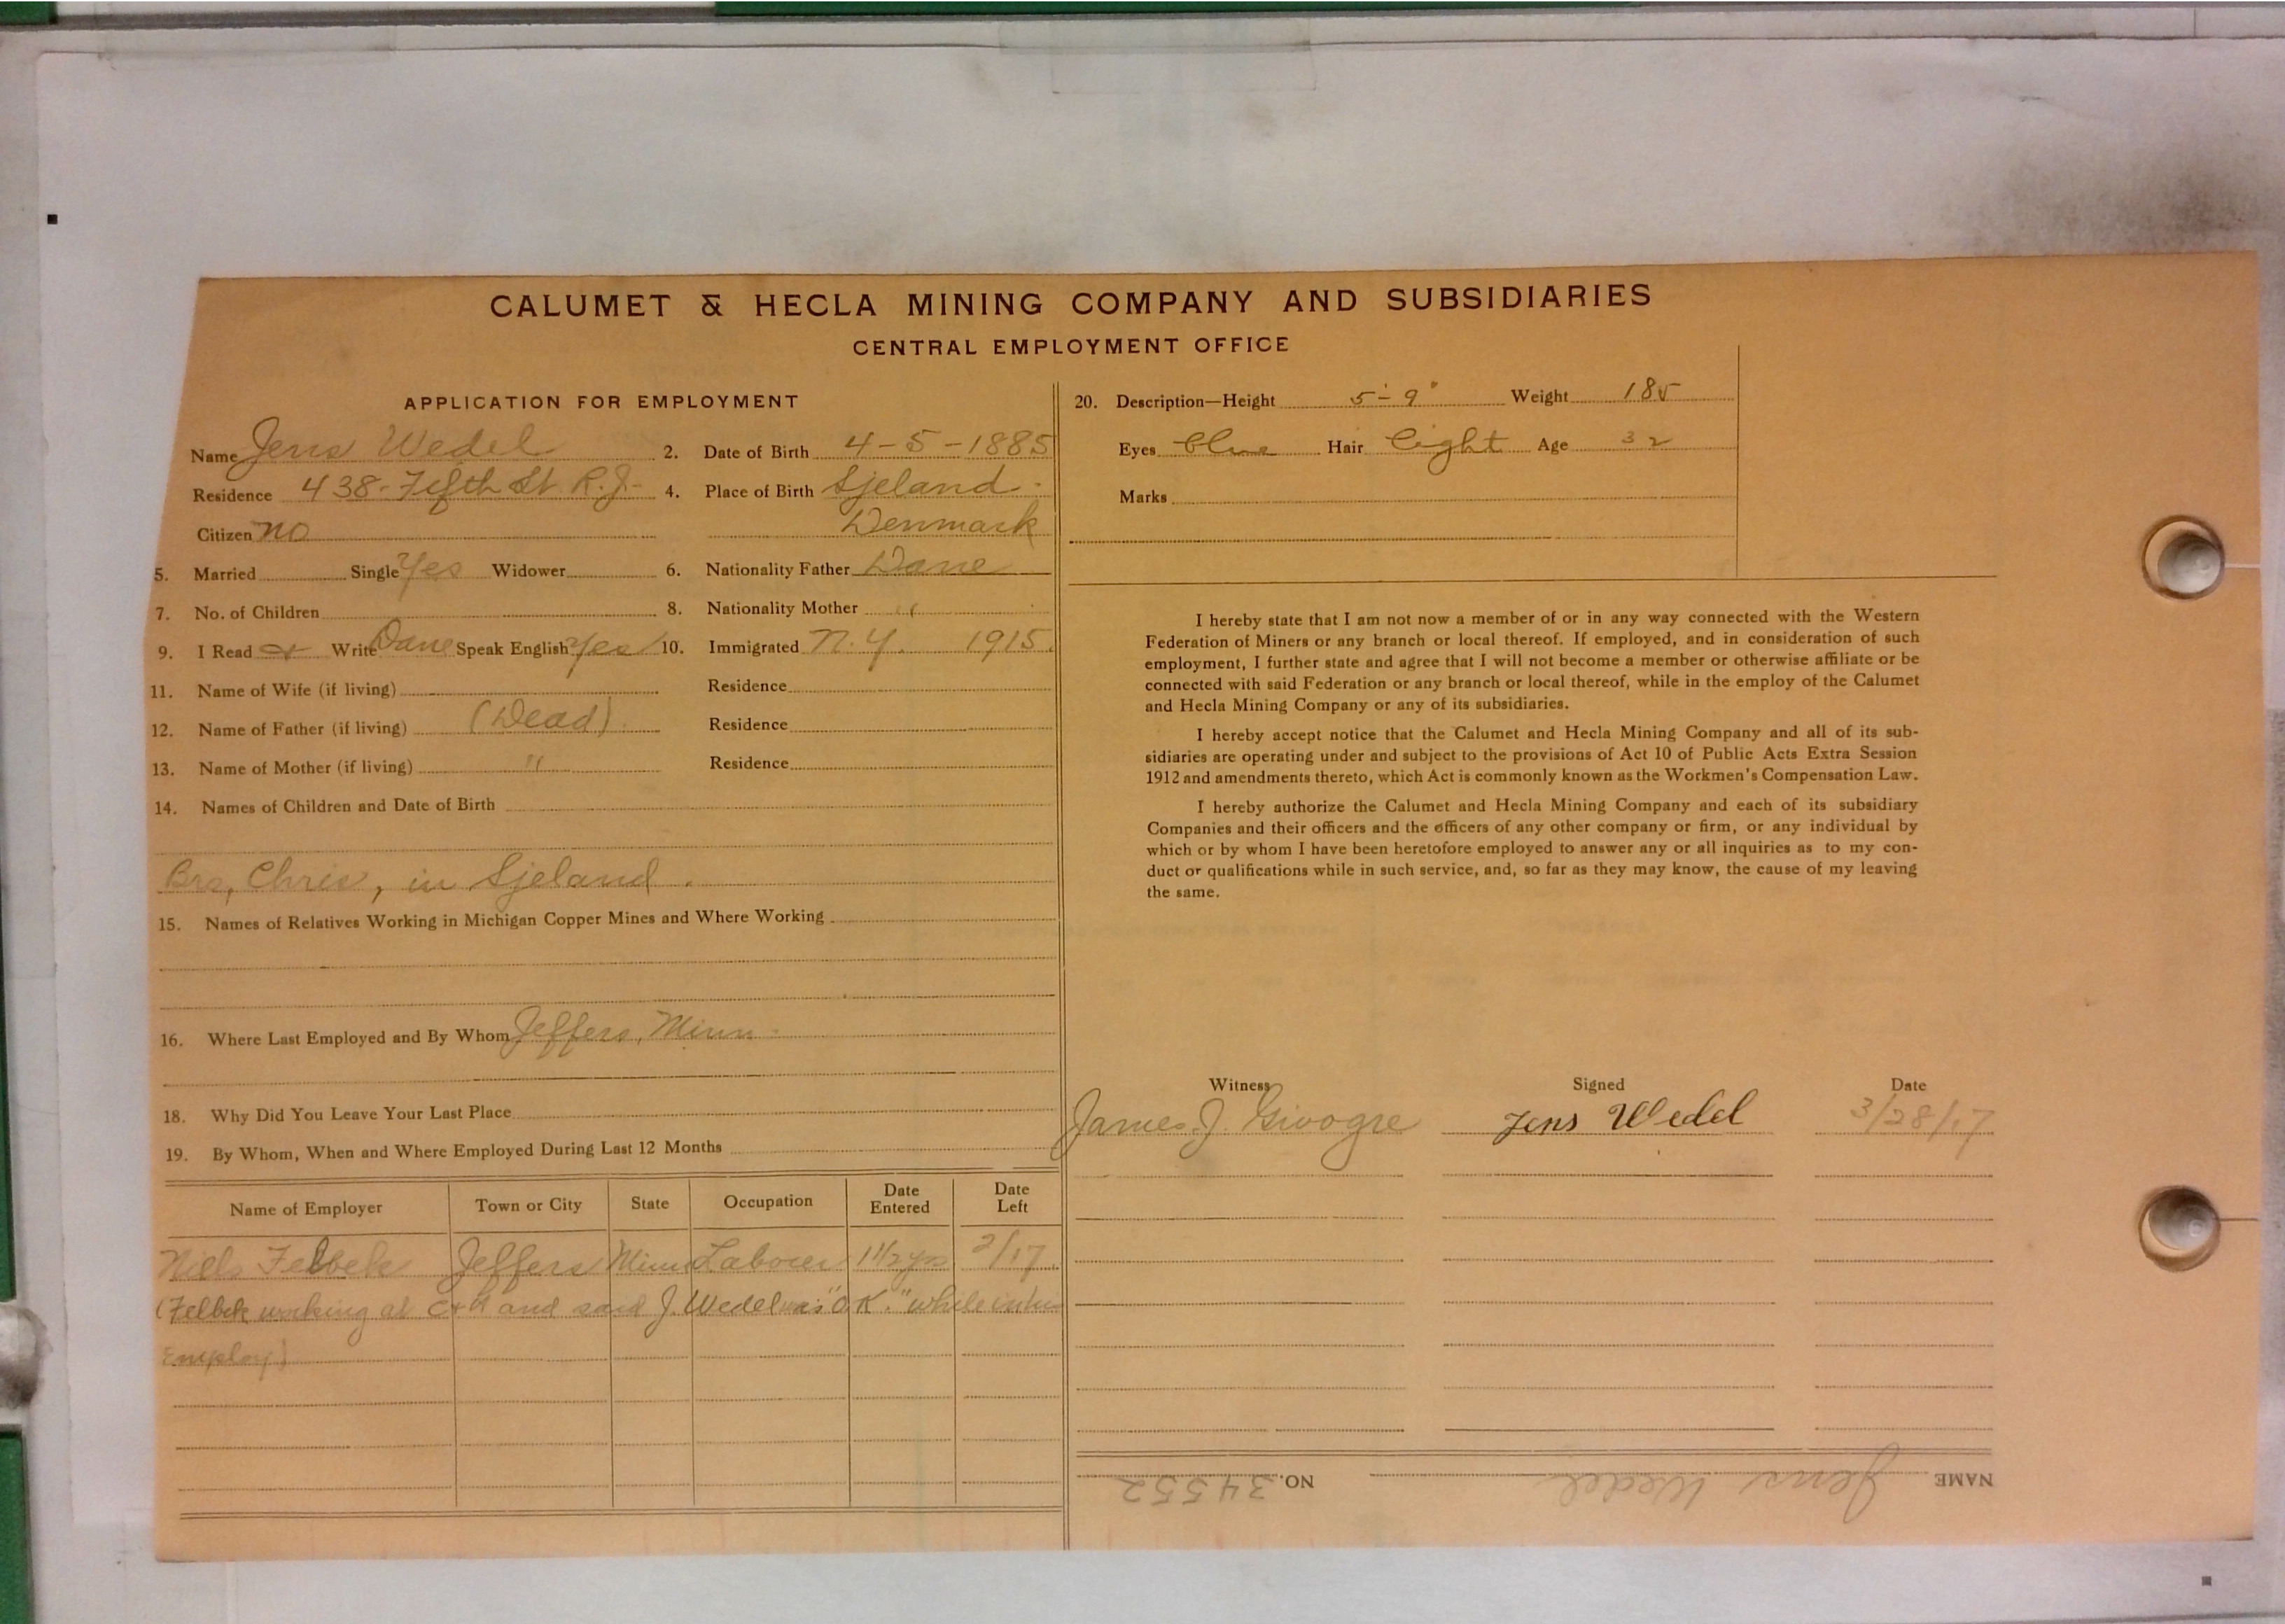 CALUMET & HECLA MINING COMPANY AND SUBSIDIARIES
CENTRAL EMPLOYMENT OFFICE
APPLICATION FOR EMPLOYMENT
Name Jens Wedel 2. Date of Birth 4-5-1885
Residence 438-Fifth St R.J. 4. Place of Birth Sjeland
Citizen no Denmark
5. Married Single Yes Widower 6. Nationality Father Dane
7. No. of Children 8. Nationality Mother "
9. I Read & Write Dane Speak English Yes 10. Immigrated N.Y. 1915.
11. Name of Wife (if living) Residence
12. Name of Father (if living) (Dead) Residence
13. Name of Mother (if living) " Residence
14. Names of Children and Date of Birth
Bro, Chris, in Sjeland.
15. Names of Relatives Working in Michigan Copper Mines and Where Working
16. Where Last Employed and By Whom Jeffers, Minn.
18. Why Did You Leave Your Last Place
19. By Whom, When and Where Employed During Last 12 Months
Name of Employer Town or City State Occupation Date Entered Date Left
Niels Felbek Jeffers Minn Laborer 1 1/2 yrs 2/17
(Felbek working at C&H and said J. Wedel was "O.K." while in his
Employ)
20. Description—Height 5'-9" Weight 185
Eyes Blue Hair Light Age 32
Marks
I hereby state that I am not now a member of or in any way connected with the Western
Federation of Miners or any branch or local thereof. If employed, and in consideration of such
employment, I further state and agree that I will not become a member or otherwise affiliate or be
connected with said Federation or any branch or local thereof, while in the employ of the Calumet
and Hecla Mining Company or any of its subsidiaries.
I hereby accept notice that the Calumet and Hecla Mining Company and all of its sub-
sidiaries are operating under and subject to the provisions of Act 10 of Public Acts Extra Session
1912 and amendments thereto, which Act is commonly known as the Workmen's Compensation Law.
I hereby authorize the Calumet and Hecla Mining Company and each of its subsidiary
Companies and their officers and the officers of any other company or firm, or any individual by
which or by whom I have been heretofore employed to answer any or all inquiries as to my con-
duct or qualifications while in such service, and, so far as they may know, the cause of my leaving
the same.
Witness Signed Date
James J. Jens Wedel 3/28/17
NAME Jens Wedel NO. 34552